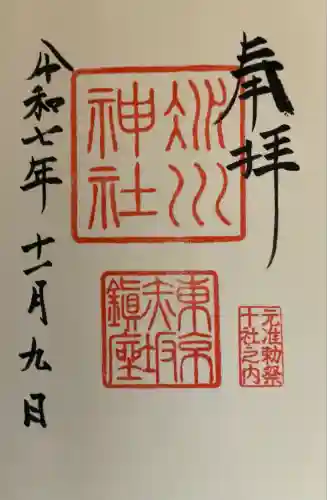 奉拝
氷川
神社
東京
赤坂
鎮座
元准勅祭
十社之内
令和七年十一月九日